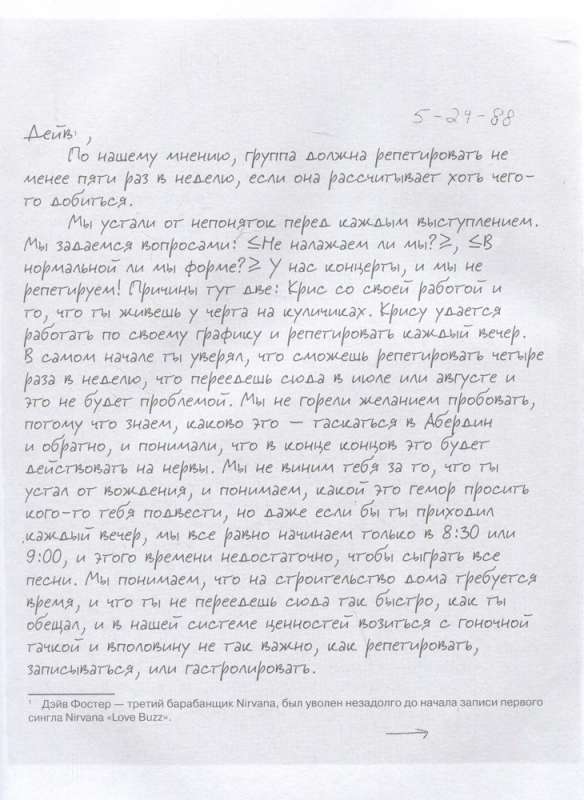 5-29-88
Дейв¹,
По нашему мнению, группа должна репетировать не
менее пяти раз в неделю, если она рассчитывает хоть чего-
то добиться.
Мы устали от непоняток перед каждым выступлением.
Мы задаемся вопросами: ≤Не налажаем ли мы?≥, ≤В
нормальной ли мы форме?≥ У нас концерты, и мы не
репетируем! Причины тут две: Крис со своей работой и
то, что ты живешь у черта на куличиках. Крису удается
работать по своему графику и репетировать каждый вечер.
В самом начале ты уверял, что сможешь репетировать четыре
раза в неделю, что переедешь сюда в июле или августе и
это не будет проблемой. Мы не горели желанием пробовать,
потому что знаем, каково это — таскаться в Абердин
и обратно, и понимали, что в конце концов это будет
действовать на нервы. Мы не виним тебя за то, что ты
устал от вождения, и понимаем, какой это гемор просить
кого-то тебя подвести, но даже если бы ты приходил
каждый вечер, мы все равно начинаем только в 8:30 или
9:00, и этого времени недостаточно, чтобы сыграть все
песни. Мы понимаем, что на строительство дома требуется
время, и что ты не переедешь сюда так быстро, как ты
обещал, и в нашей системе ценностей возиться с гоночной
тачкой и вполовину не так важно, как репетировать,
записываться, или гастролировать.
¹ Дэйв Фостер — третий барабанщик Nirvana, был уволен незадолго до начала записи первого
сингла Nirvana «Love Buzz».